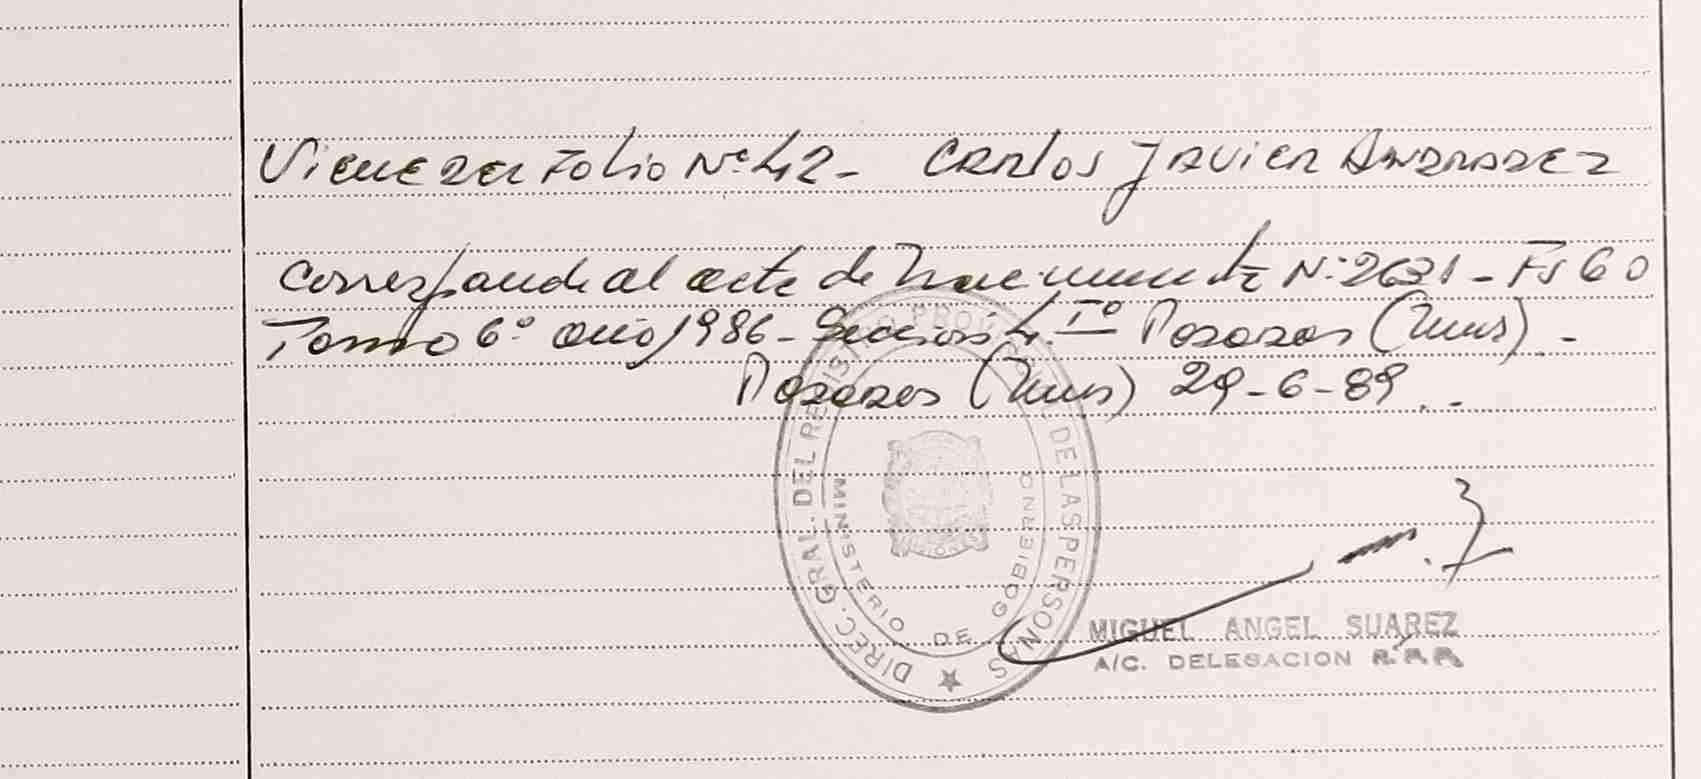 Viene del Folio Nº 42 - Carlos Javier Andradez
Corresponde al acta de Nacimiento Nº 2631 - Fs 60
Tomo 6º año 1986 - Sección 4. Iº Posadas (Mnes). -
Posadas (Mnes) 29-6-89. -
DIREC. GRAL. DEL REGISTRO PROVINCIAL DE LAS PERSONAS
MINISTERIO DE GOBIERNO
MIGUEL ANGEL SUAREZ
A/C. DELEGACION